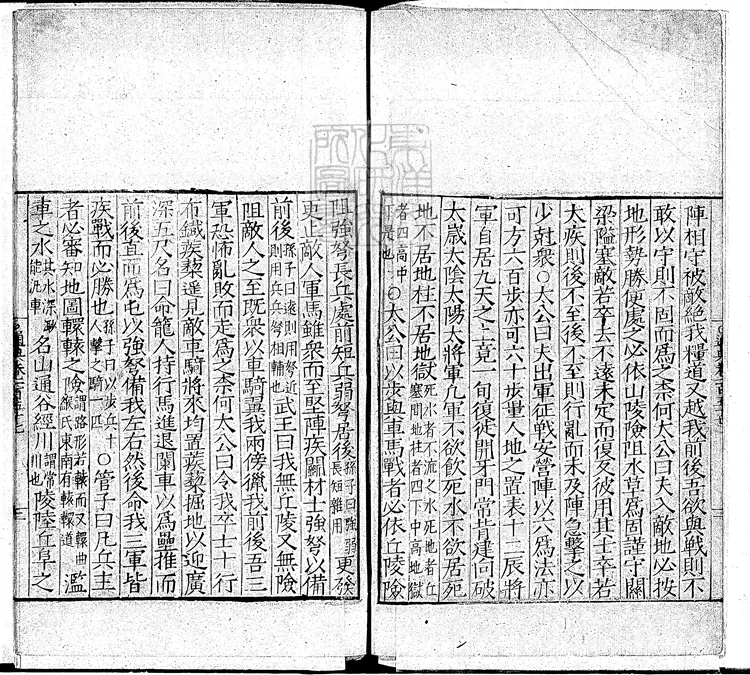 陣相守被敵絶我糧道又越我前後吾欲與戰則不
敢以守則不固而為之柰何太公曰夫入敵地必按
地形勢勝便處之必依山陵險阻水草為固謹守關
梁隘塞敵若卒去不遠未定而復反彼用其士卒若
太疾則後不至後不至則行亂而未及陣急擊之以
少尅衆○太公曰夫出軍征戰安營陣以六為法亦
可方六百步亦可六十步量人地之置表十二辰將
軍自居九天之上竟一旬復徙開牙門常背建向破
太歲太陰太陽大將軍凡軍不欲飲死水不欲居死
地不居地柱不居地獄死水者不流之水死地者丘塞間地柱者四下中高地獄
者四高中下是也○太公曰以步與車馬戰者必依丘陵險
阻強弩長兵處前短兵弱弩居後孫子曰強弱長短雜用更發
更止敵人軍馬雖衆而至堅陣疾鬬材士強弩以備
前後孫子曰遠則用弩近則用兵兵弩相輔也武王曰我無丘陵又無險
阻敵人之至既衆以車騎翼我兩傍獵我前後吾三
軍恐怖亂敗而走為之柰何太公曰令我卒士十行
布鐵蒺藜遥見敵車騎將來均置蒺藜掘地以迎廣
深五尺名曰命籠人持行馬進退闌車以為壘推而
前後直而為屯以強弩備我左右然後命我三軍皆
疾戰而必勝也孫子曰以步兵十人擊之騎一匹○管子曰凡兵主
者必審知地圖轘轅之險謂路形若轅而又轘曲緱氏東南有轘轅道濫
車之水其水深渺能汎車名山通谷經川謂常川也陵陸丘阜之